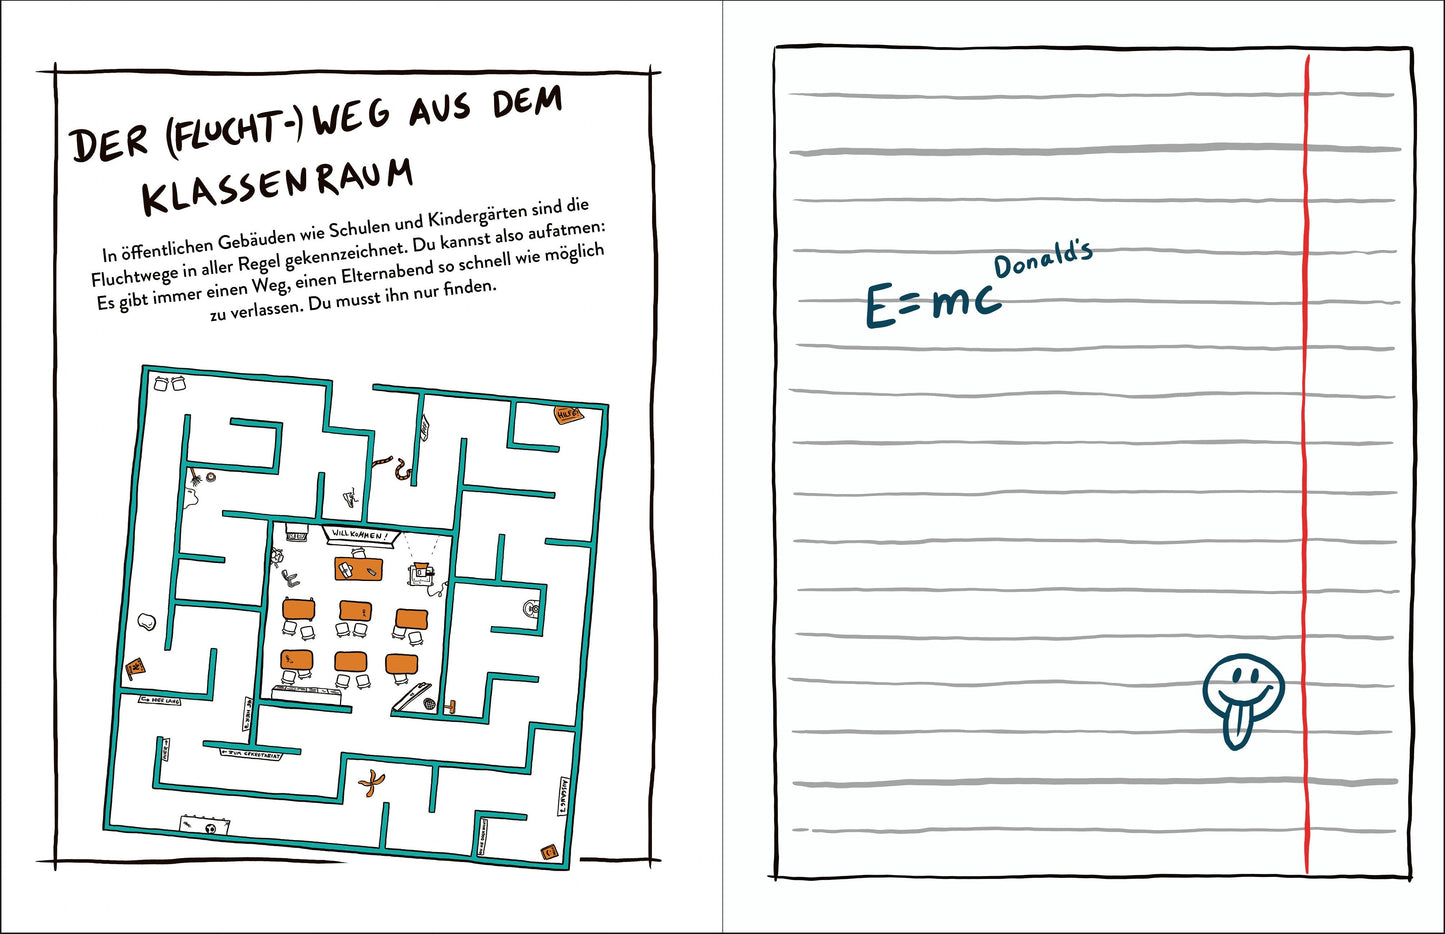 DER (FLUCHT-) WEG AUS DEM
KLASSENRAUM
In öffentlichen Gebäuden wie Schulen und Kindergärten sind die
Fluchtwege in aller Regel gekennzeichnet. Du kannst also aufatmen:
Es gibt immer einen Weg, einen Elternabend so schnell wie möglich
zu verlassen. Du musst ihn nur finden.
HILFE!
WILLKOMMEN!
ODER LANG
← ZUM SEKRETARIAT
AUSGANG?
E=mc Donald's